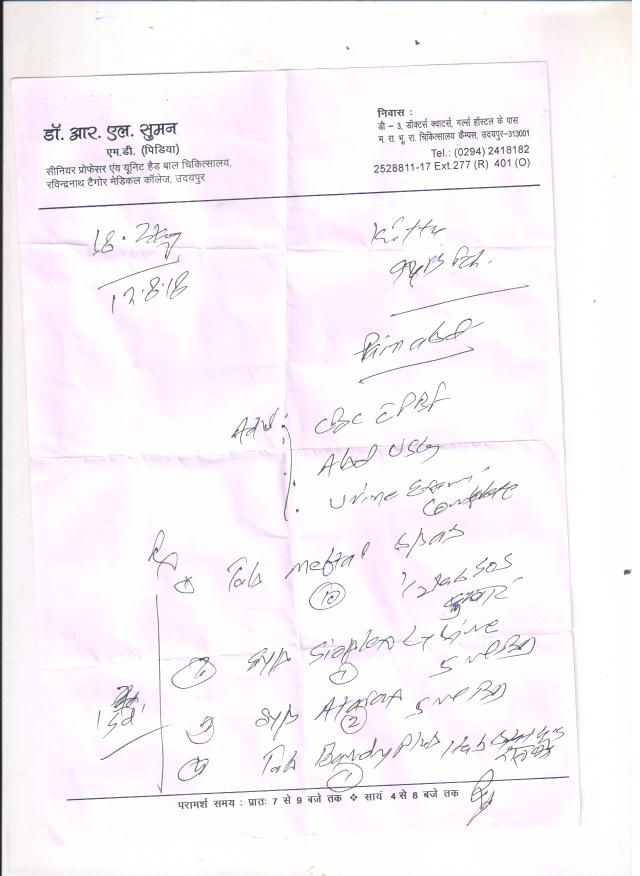 डॉ. आर. एल. सुमन
एम.डी. (पिडिया)
सीनियर प्रोफेसर एंव यूनिट हैड बाल चिकित्सालय,
रविन्द्रनाथ टैगोर मेडिकल कॉलेज, उदयपुर
निवास :
डी – 3, डॉक्टर्स क्वाटर्स, गर्ल्स हॉस्टल के पास
म. रा. भू. रा. चिकित्सालय कैम्पस, उदयपुर-313001
Tel.: (0294) 2418182
2528811-17 Ext.277 (R) 401 (O)
18.2kg
12.8.18
Pain abd
Adv:
CBC C PBF
Abd USG
Urine Exam
Complete
Rx
1 Tab Meftal Spas
10
1/2 tab SOS
2 Syp
1
5 ml BD
3 Syp
2
5 ml BD
4 Tab Bandy Plus 1 tab
1
परामर्श समय : प्रातः 7 से 9 बजे तक ❖ सायं 4 से 8 बजे तक